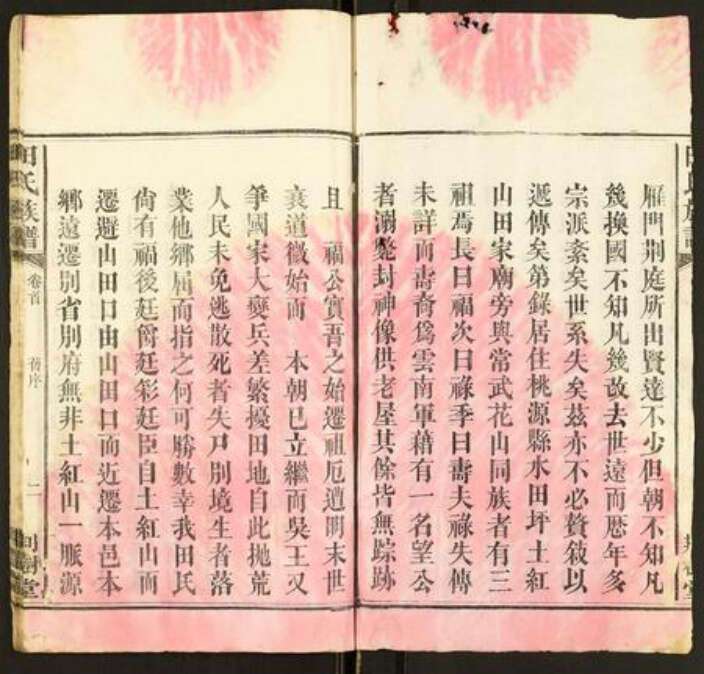 雁門荆庭所出賢達不少但朝不知凡
幾換國不知凡幾改去世遠而厯年多
宗派紊矣世系失矣茲亦不必贅敍以
遞傳矣第錄居住桃源縣水田坪土紅
山田家廟旁與常武花山同族者有三
祖焉長曰福次曰祿季曰壽夫祿失傳
未詳而壽裔爲雲南軍藉有一名望公
者溺斃封神像供老屋其餘皆無踪跡
且 福公實吾之始遷祖厄遭明末世
衰道微始而 本朝已立繼而吳王又
爭國家大變兵差繁擾田地自此拋荒
人民未免逃散死者失尸別境生者落
業他鄉屈而指之何可勝數幸我田氏
尙有福後廷爵廷彩廷臣自土紅山而
遷避山田口由山田口而近遷本邑本
鄉遠遷別省別府無非土紅山一脈源
田氏族譜
卷首
舊序
二